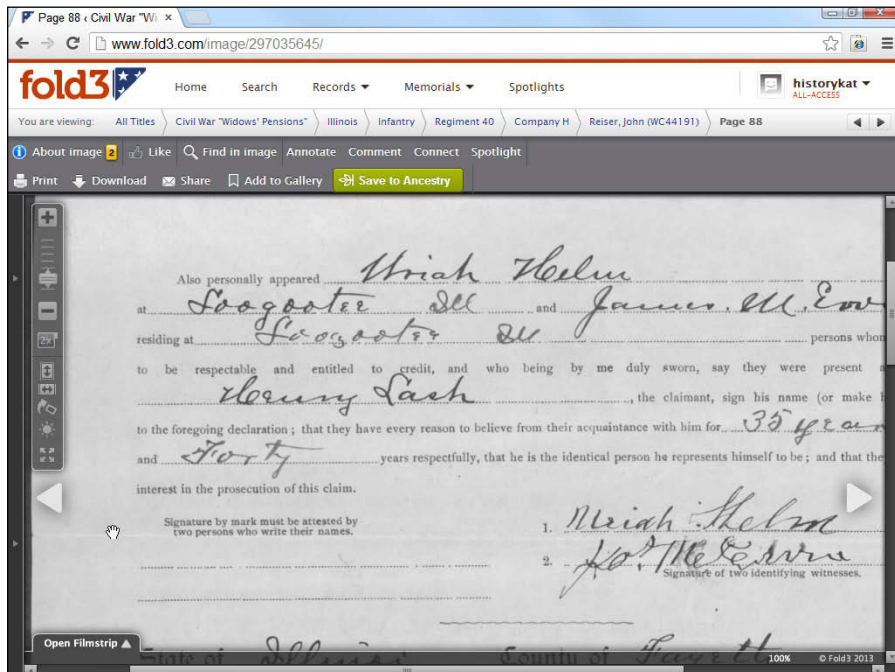 Page 88 ‹ Civil War "Wi
www.fold3.com/image/297035645/
fold3
Home Search Records Memorials Spotlights
historykat
ALL-ACCESS
You are viewing: All Titles Civil War "Widows' Pensions" Illinois Infantry Regiment 40 Company H Reiser, John (WC44191) Page 88
About image 2 Like Find in image Annotate Comment Connect Spotlight
Print Download Share Add to Gallery Save to Ancestry
2x
Also personally appeared Uriah Helm
at Loogootee Ill and James. M.
residing at Loogootee Ill persons whom
to be respectable and entitled to credit, and who being by me duly sworn, say they were present a
Henry Lash, the claimant, sign his name (or make h
to the foregoing declaration; that they have every reason to believe from their acquaintance with him for 35 year
and Forty years respectfully, that he is the identical person he represents himself to be; and that the
interest in the prosecution of this claim.
Signature by mark must be attested by
two persons who write their names.
1. Uriah Helm
2.
Signature of two identifying witnesses.
Open Filmstrip
State of Illinois County of Fayett
100% © Fold3 2013